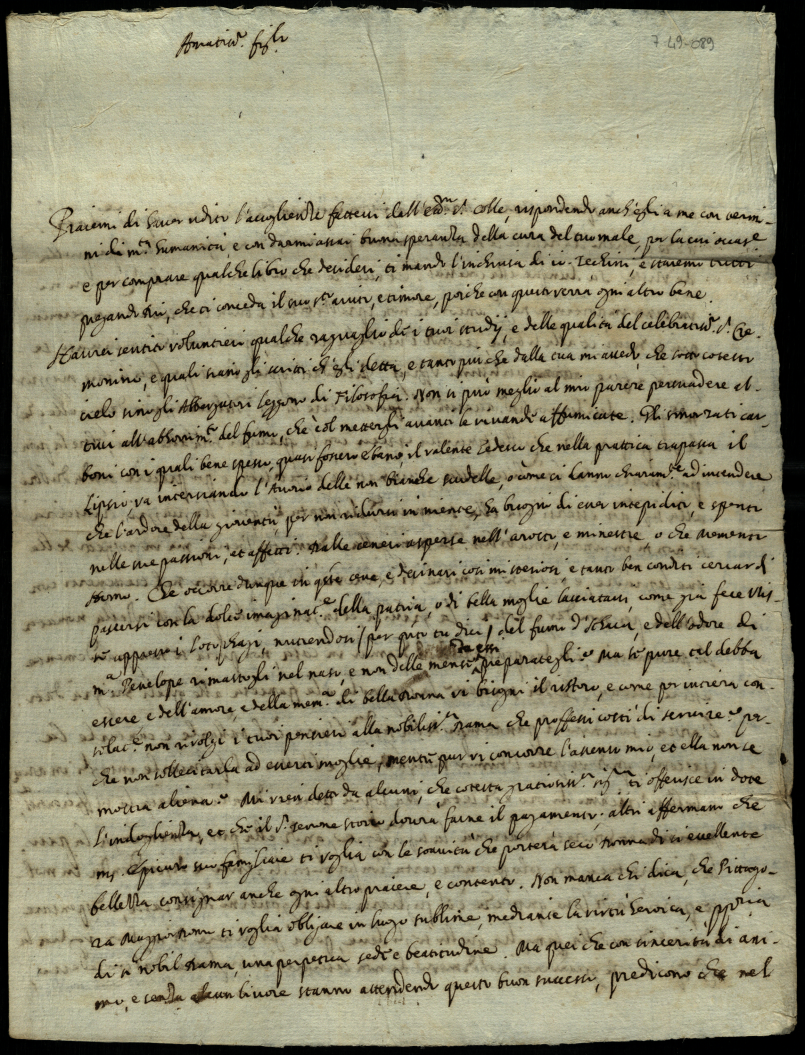 Amatiss.º fig.lo
7 49-089
Piacemi di haver udito l'accoglienze fattevi dall'Ecc.mo S.r Colle, rispondendo anch'egli a me con termi-
ni di m.ta humanità e con darmi assai buona speranza della cura del tuo male, per la cui occas.e
e per comprare qualche libro che desideri, ti mando l'inchiusa di 10. zechini, e staremo
pregando Dio, che ti conceda il suo s.to aiuto, e timore, poiche con questi verrà ogni altro bene.
Haurei sentito voluntieri qualche raguaglio de i tuoi studij, e delle qualità del celebratiss.º S.r Cre-
monino, e quali siano gli scritti ch'egli detta, e tanto più che dalla tua mi avvedo, che sotto cotesto
cielo sino gli Albergatori leggono di Filosofia. Non si può meglio al mio parere persuadere al-
trui all'abborrim.to del fumo, che col mettergli avanti le vivande affumicate. Gli smorzati car-
boni con i quali bene spesso, quasi fossero ebano il valente tedesco che nella prattica trapassa il
Lipsio va intersiando l'avorio delle non bianche scudelle, o come ci danno chiaram.te ad intendere
che l'ardore della gioventù, per non ridursi in niente, ha bisogno di esser intepidito, e spento
nelle sue passioni, et affetti. Dalle ceneri asperse nell'arosto, e minestre o che memento
homo. Che occorre dunque in q.ste cene, e desinari così misteriosi, e tanto ben conditi cercar di
pascersi con la dolce imaginat.e della patria, o di bella moglie lasciatavi, come già fece Ulis-
se appresso i Lotophagi, nutrendosi (per quanto tu dici) del fumo d'Itaca, e dell'odore di
m.a Penelope rimastogli nel naso, e non delle mense da essi preparategli? Ma se pure tal debba
essere e dell'amore, e della mem.a di bella donna vi bisogni il ristoro, e come per intiera con-
solat.e non rivolgi i tuoi pensieri alla nobiliss.ma Dama che professi costì di servire? per-
che non sollecitarla ad esserti moglie, mentre pur vi concorre l'assenso mio, et ella non se
mostra aliena? Mi vien detto da alcuni, che cotesta gratiosiss.ma sig.ra ti offerisce in dote
L'indoglienza, et che il S.r Zenone stoico dovrà farne il pagamento; altri affermano che
ms. Epicuro suo famigliare ti voglia con la soavità che porterà seco Donna di sì eccellente
bellezza consignar anche ogni altro piacere, e contento. Non manca chi dica, che Pittago-
ra Maggiordomo ti voglia obligare in luogo sublime, mediante la virtù heroica, e propria
di sì nobil Dama, una perpetua sede e beatitudine. Ma quei che con sincerità di ani-
mo, e senza alcun livore stanno attendendo questo buon successo, predicono che nel